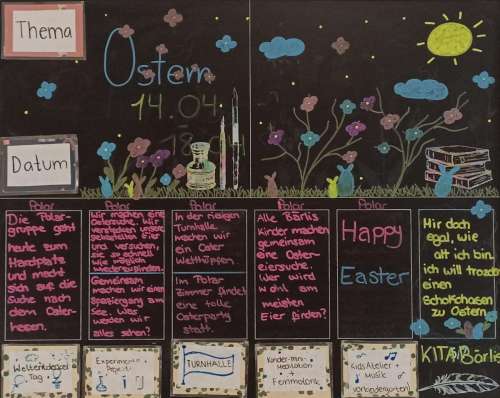 Thema
Ostern
14.04
18.
Datum
Polar
Polar
Polar
Polar
Polar
Die Polar-
gruppe geht
heute zum
Hardplatz
und macht
sich auf die
Suche nach
dem Oster-
hasen.
Wir machen eine
Ostersuche. Wir
verstecken unsere
gebastelten Eier
und versuchen,
sie so schnell
wie möglich
wiederzufinden.
Gemeinsam
machen wir einen
Spaziergang am
See. Was
werden wir
alles sehen?
In der riesigen
Turnhalle
machen wir
ein Oster
Wetthüpfen.
Im Polar
zimmer findet
eine tolle
Osterparty
statt.
Alle Bärlis
Kinder machen
gemeinsam
eine Oster-
eiersuche.
Wer wird
wohl am
meisten
Eier finden?
Happy
Easter
Mir doch
egal, wie
alt ich bin,
ich will trotzdem
einen
Schokohasen
zu Ostern
KITA Bärlis
Tag
Experimente
TURNHALLE
Meditation
+
KidsAtelier +
Musik